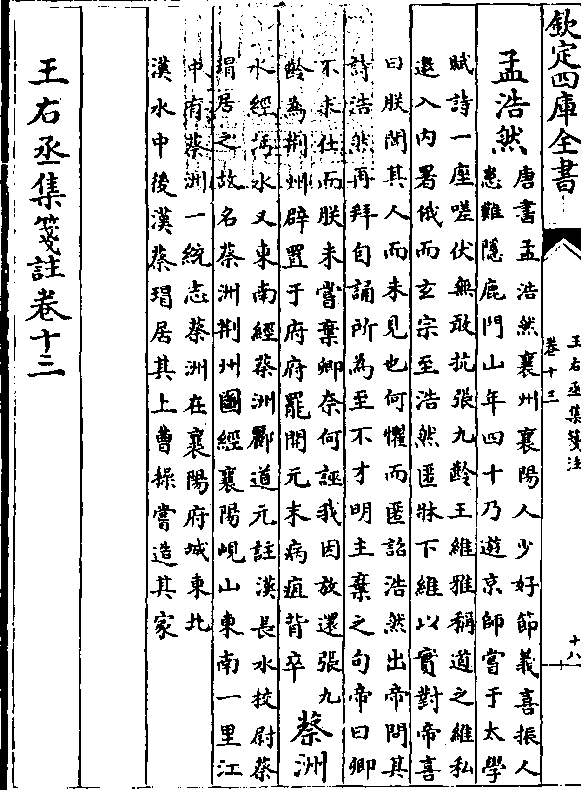 欽定四庫全書
王右丞集箋注
卷十三
十八
孟浩然
唐書孟浩然襄州襄陽人少好節義喜振人
患難隱鹿門山年四十乃遊京師嘗于太學
賦詩一座嗟伏無敢抗張九齡王維雅稱道之維私
邀入内署俄而玄宗至浩然匿牀下維以實對帝喜
曰朕聞其人而未見也何懼而匿詔浩然出帝問其
詩浩然再拜自誦所為至不才明主棄之句帝曰卿
不求仕而朕未嘗棄卿奈何誣我因放還張九
齡為荆州辟置于府府罷開元末病疽背卒
蔡洲
水經沔水又東南經蔡洲酈道元註漢長水校尉蔡
瑁居之故名蔡洲荆州圖經襄陽峴山東南一里江
中有蔡洲一統志蔡洲在襄陽府城東北
漢水中後漢蔡瑁居其上曹操嘗造其家
王右丞集箋註卷十三